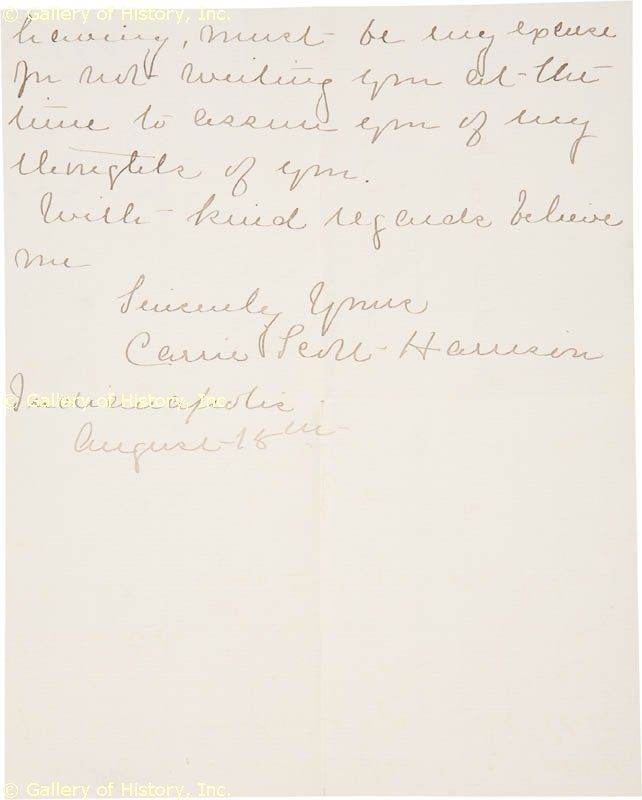 © Gallery of History, Inc.
having, must be my excuse
for not writing you at the
time to assure you of my
thoughts of you.
With kind regards believe
me
Sincerely Yours
Carrie Scott Harrison
Indianapolis.
© Gallery of History, Inc.
August 18th
© Gallery of History, Inc.